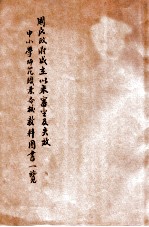 國民政府成立以來審定及失效
中小學師範職業各校教科圖書一覽